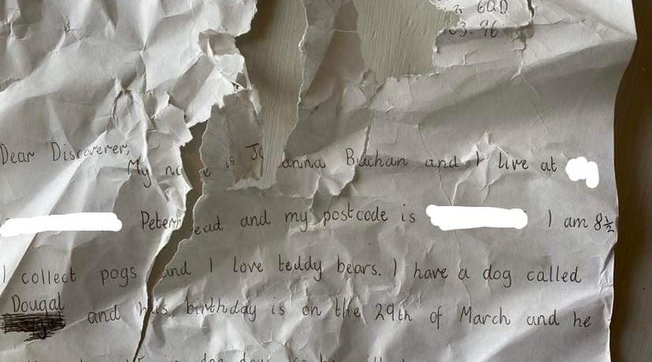 6QD
03.96
Dear Discoverer,
My name is Joanna Buchan and I live at
Peterhead and my postcode is I am 8½
I collect pogs and I love teddy bears. I have a dog called
Dougal
and his birthday is on the 29th of March and he